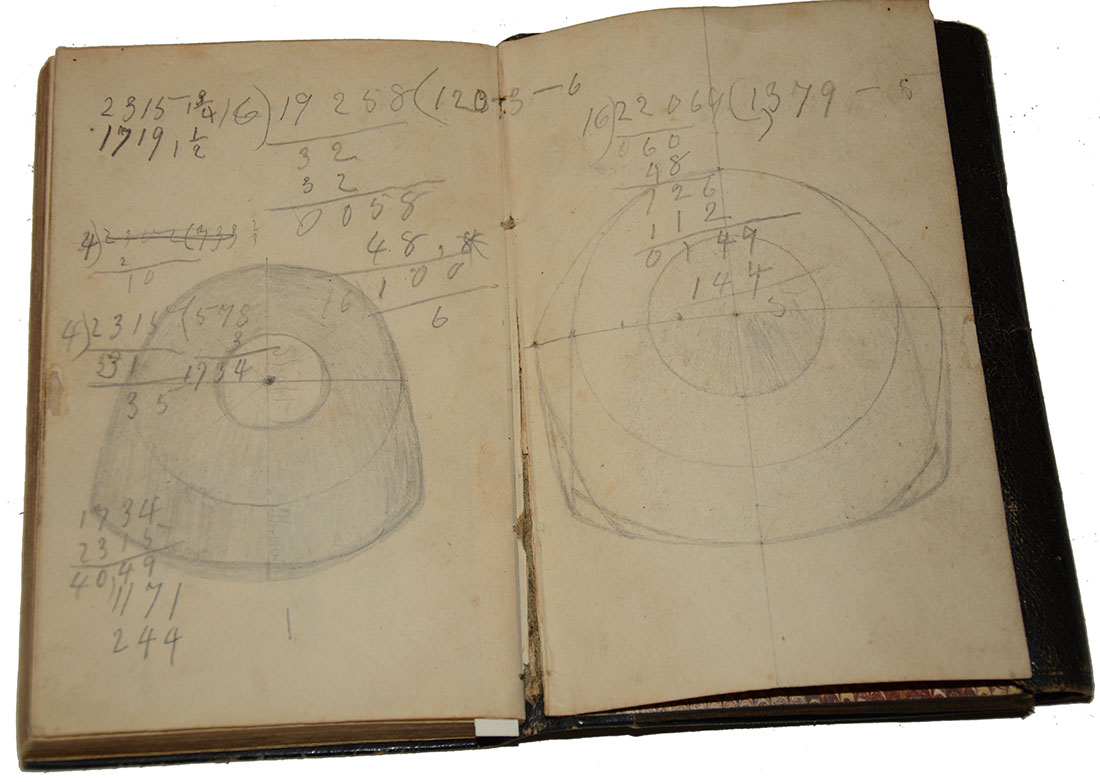 2315 1 3/4
1719 1 1/2
16)19258(1203 - 6
32
32
0058
48
100
16
6
4)
2
10
4)2315(578
331
3
1734
35
1734
2315
40,49
1171
244
1
16)22069(1379 - 5
060
48
126
112
0149
144
5